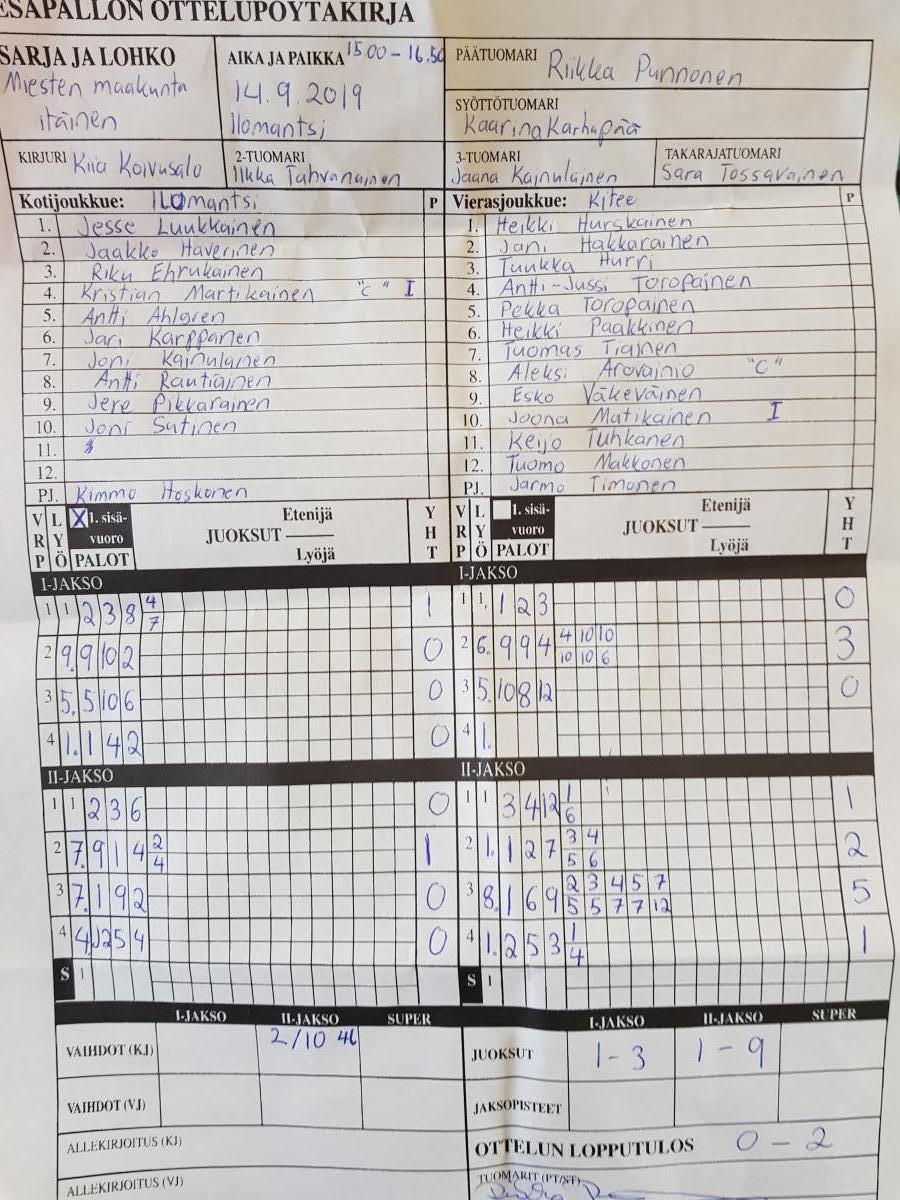 ESÄPALLON OTTELUPÖYTÄKIRJA
SARJA JA LOHKO
Miesten maakunta
itäinen
AIKA JA PAIKKA 15.00-16.50
14.9.2019
Ilomantsi
PÄÄTUOMARI Riikka Punnonen
SYÖTTÖTUOMARI
Kaarina Karhapää
KIRJURI Kiia Koivusalo
2-TUOMARI
Ilkka Tahvanainen
3-TUOMARI
Jaana Kainulainen
TAKARAJATUOMARI
Sara Tossavainen
Kotijoukkue: Ilomantsi P
1. Jesse Luukkainen
2. Jaakko Haverinen
3. Riku Ehrukainen
4. Kristian Martikainen "C" I
5. Antti Ahlgren
6. Jari Karppanen
7. Joni Kainulainen
8. Antti Rautiainen
9. Jere Pikkarainen
10. Joni Sutinen
11.
12.
PJ. Kimmo Hoskonen
Vierasjoukkue: Kitee P
1. Heikki Hurskainen
2. Jani Hakkarainen
3. Tuukka Hurri
4. Antti-Jussi Toropainen
5. Pekka Toropainen
6. Heikki Paakkinen
7. Tuomas Tiainen
8. Aleksi Arovainio "C"
9. Esko Väkeväinen
10. Joona Matikainen I
11. Keijo Tuhkanen
12. Tuomo Makkonen
PJ. Jarmo Timonen
VRP LYÖ X 1. sisävuoro PALOT JUOKSUT Etenijä Lyöjä YHT
I-JAKSO
1 1 2 3 8 4/7 1
2 9. 9 10 2 0
3 5. 5 10 6 0
4 1. 1 4 2 0
II-JAKSO
1 1 2 3 6 0
2 7. 9 1 4 2/4 1
3 7. 1 9 2 0
4 4. 2 5 4 0
S 1
VRP LYÖ 1. sisävuoro PALOT JUOKSUT Etenijä Lyöjä YHT
I-JAKSO
1 1. 1 2 3 0
2 6. 9 9 4 4/10 10/10 10/6 3
3 5. 10 8 12 0
4 1.
II-JAKSO
1 1 3 4 12 1/6 1
2 1. 1 2 7 3/5 4/6 2
3 8. 1 6 9 2/5 3/5 4/7 5/7 7/12 5
4 1. 2 5 3 1/4 1
S 1
I-JAKSO II-JAKSO SUPER
VAIHDOT (KJ) 2/10 4L
VAIHDOT (VJ)
ALLEKIRJOITUS (KJ)
ALLEKIRJOITUS (VJ)
I-JAKSO II-JAKSO SUPER
JUOKSUT 1-3 1-9
JAKSOPISTEET
OTTELUN LOPPUTULOS 0-2
TUOMARIT (PT/ST)